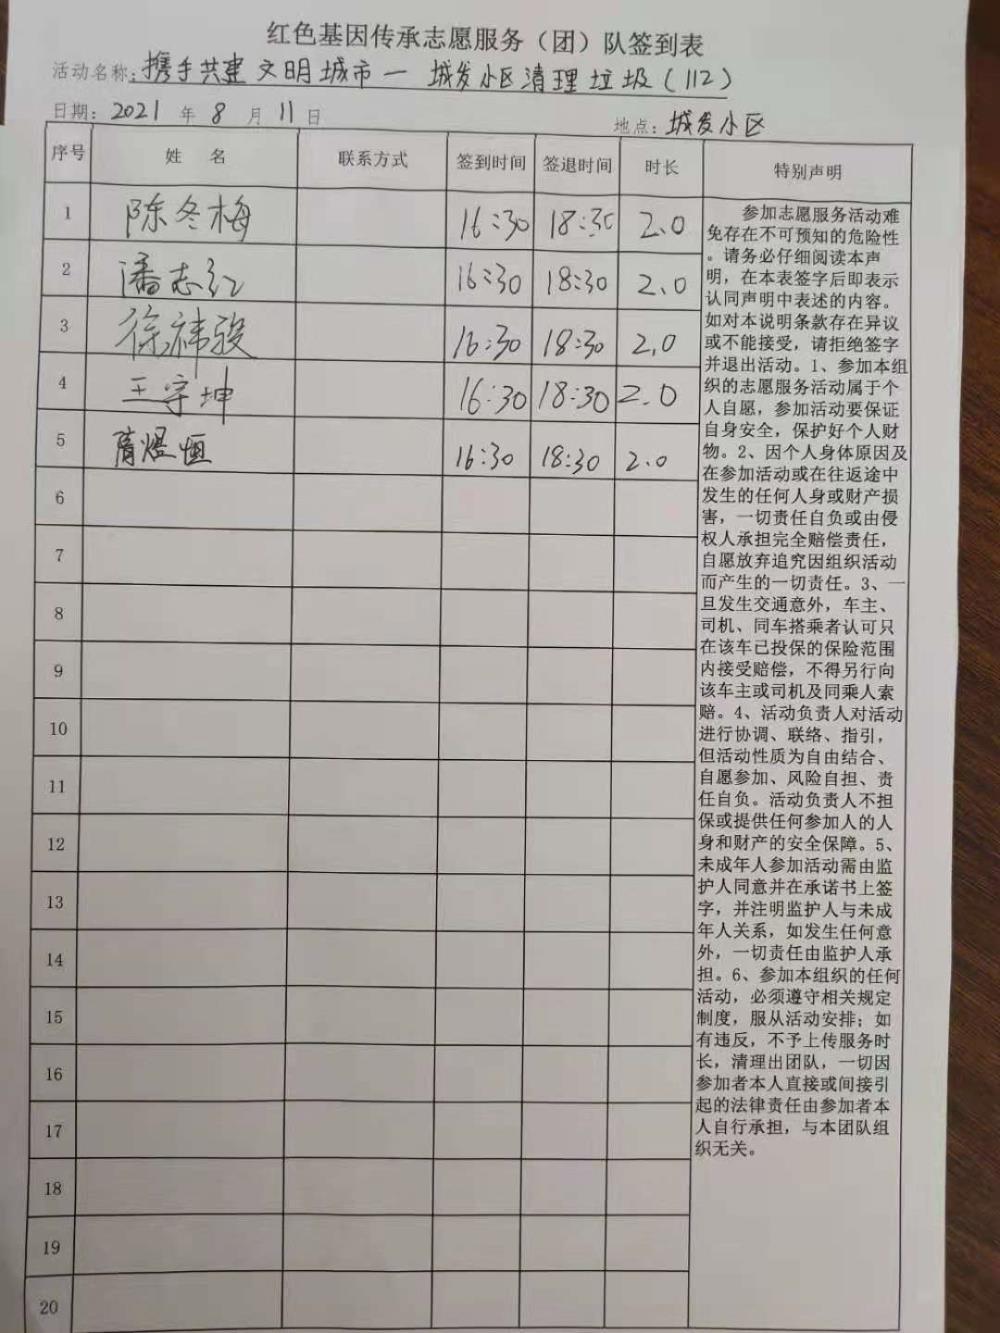 红色基因传承志愿服务（团）队签到表
活动名称：携手共建文明城市—城发小区清理垃圾（112）
日期：2021 年 8 月 11 日 地点：城发小区
序号 姓 名 联系方式 签到时间 签退时间 时长 特别声明
1 陈冬梅 16:30 18:30 2.0
2 潘志红 16:30 18:30 2.0
3 徐祎骏 16:30 18:30 2.0
4 王宇坤 16:30 18:30 2.0
5 煜恒 16:30 18:30 2.0
6
7
8
9
10
11
12
13
14
15
16
17
18
19
20
参加志愿服务活动难
免存在不可预知的危险性
。请务必仔细阅读本声
明，在本表签字后即表示
认同声明中表述的内容。
如对本说明条款存在异议
或不能接受，请拒绝签字
并退出活动。1、参加本组
织的志愿服务活动属于个
人自愿，参加活动要保证
自身安全，保护好个人财
物。2、因个人身体原因及
在参加活动或在往返途中
发生的任何人身或财产损
害，一切责任自负或由侵
权人承担完全赔偿责任，
自愿放弃追究因组织活动
而产生的一切责任。3、一
旦发生交通意外，车主、
司机、同车搭乘者认可只
在该车已投保的保险范围
内接受赔偿，不得另行向
该车主或司机及同乘人索
赔。4、活动负责人对活动
进行协调、联络、指引，
但活动性质为自由结合、
自愿参加、风险自担、责
任自负。活动负责人不担
保或提供任何参加人的人
身和财产的安全保障。5、
未成年人参加活动需由监
护人同意并在承诺书上签
字，并注明监护人与未成
年人关系，如发生任何意
外，一切责任由监护人承
担。6、参加本组织的任何
活动，必须遵守相关规定
制度，服从活动安排；如
有违反，不予上传服务时
长，清理出团队，一切因
参加者本人直接或间接引
起的法律责任由参加者本
人自行承担，与本团队组
织无关。